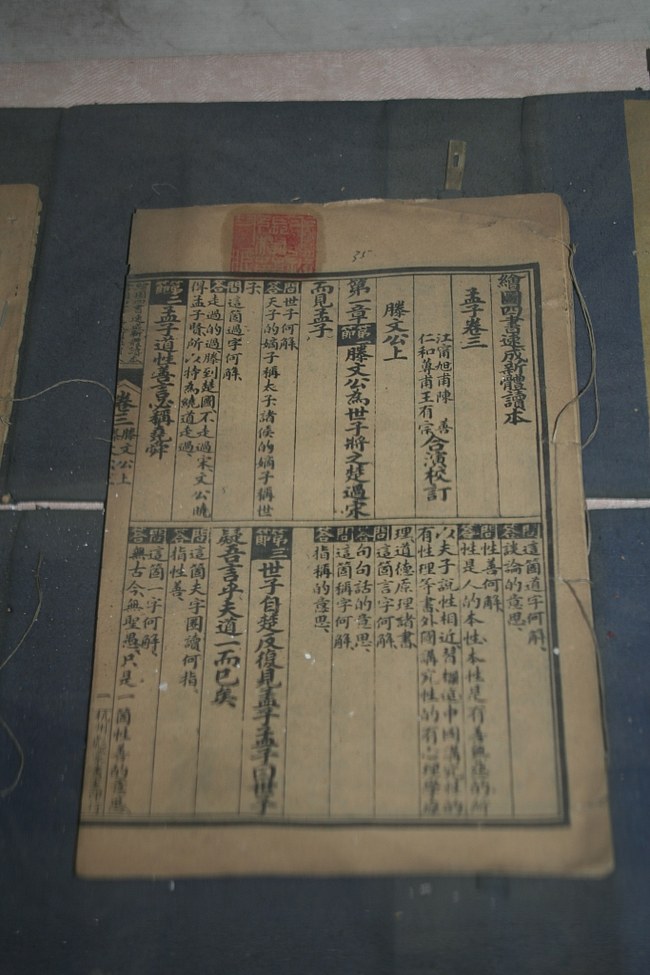 35
繪圖四書速成新體讀本
孟子卷三
江甯旭甫陳　善
仁和尊甫王有宗
合演校訂
滕文公上
第一章 第一節 滕文公為世子將之楚過宋
而見孟子
問世子何解
答天子的嫡子稱太子諸侯的嫡子稱世
子
問這箇過字何解
答走過的過滕到楚國不走過宋文公曉
得孟子賢所以特為繞道走過
第二節 孟子道性善言必稱堯舜
問這箇道字何解
答談論的意思
問性善何解
答性是人的本性本性是有善無惡的所
以夫子說性相近習相遠中國講究性的
有性理等書外國講究性的有心理學
理道德原理諸書
問這箇言字何解
答句句話的意思
問這箇稱字何解
答指稱的意思
第三節 世子自楚反復見孟子孟子曰世子
疑吾言乎夫道一而已矣
問這箇夫字圈讀何指
答指性善
問這箇一字何解
答無古今無聖愚只是一箇性善的意思
卷三 滕文公上
一
杭州